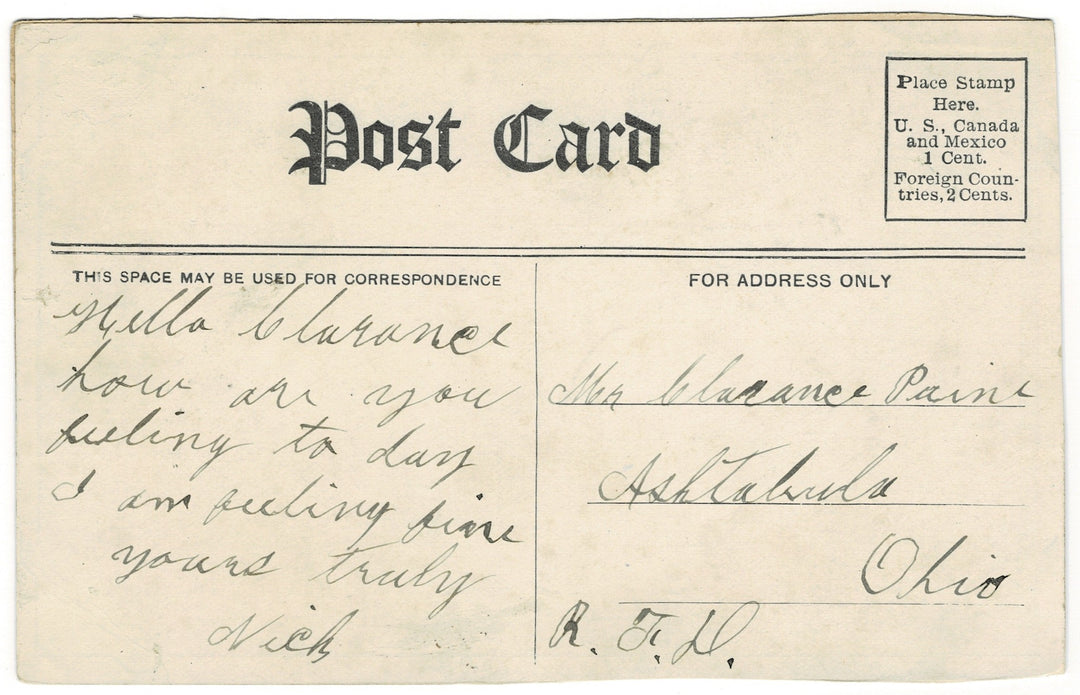 Post Card
Place Stamp
Here.
U. S., Canada
and Mexico
1 Cent.
Foreign Coun-
tries, 2 Cents.
THIS SPACE MAY BE USED FOR CORRESPONDENCE
Hello Clarance
how are you
feeling to day
I am feeling fine
yours truly
Nick
FOR ADDRESS ONLY
Mr Clarance Paine
Ashtabula
Ohio
R. F. D.